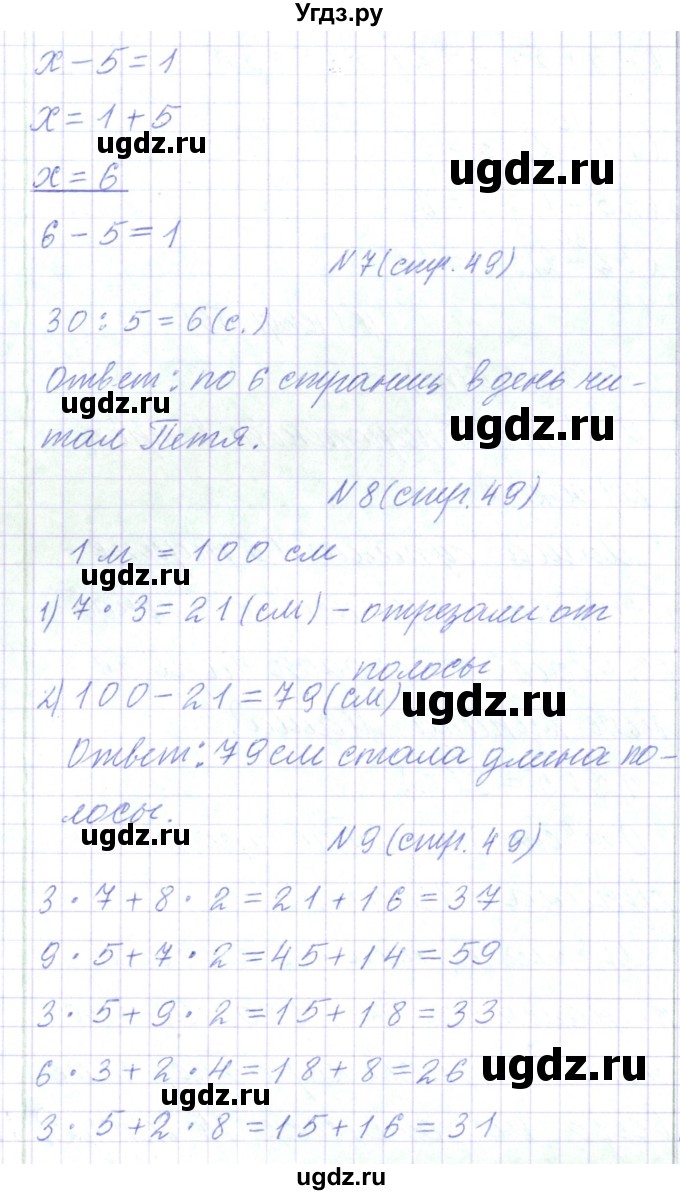 Угдз.ру
x - 5 = 1
x = 1 + 5
ugdz.ru
ugdz.ru
x = 6
6 - 5 = 1
N7(стр. 49)
30 : 5 = 6 (с.)
Ответ: по 6 страниц в день чи-
ugdz.ru
ugdz.ru
тал Петя.
N8(стр. 49)
1 м = 100 см
ugdz.ru
1) 7 · 3 = 21 (см) - отрезали от
полосы
2) 100 - 21 = 79 (см)
ugdz.ru
Ответ: 79 см стала длина по-
лосы.
ugdz.ru
N9(стр. 49)
3 · 7 + 8 · 2 = 21 + 16 = 37
9 · 5 + 7 · 2 = 45 + 14 = 59
3 · 5 + 9 · 2 = 15 + 18 = 33
6 · 3 + 2 · 4 = 18 + 8 = 26
ugdz.ru
ugdz.ru
3 · 5 + 2 · 8 = 15 + 16 = 31
ugdz.ru